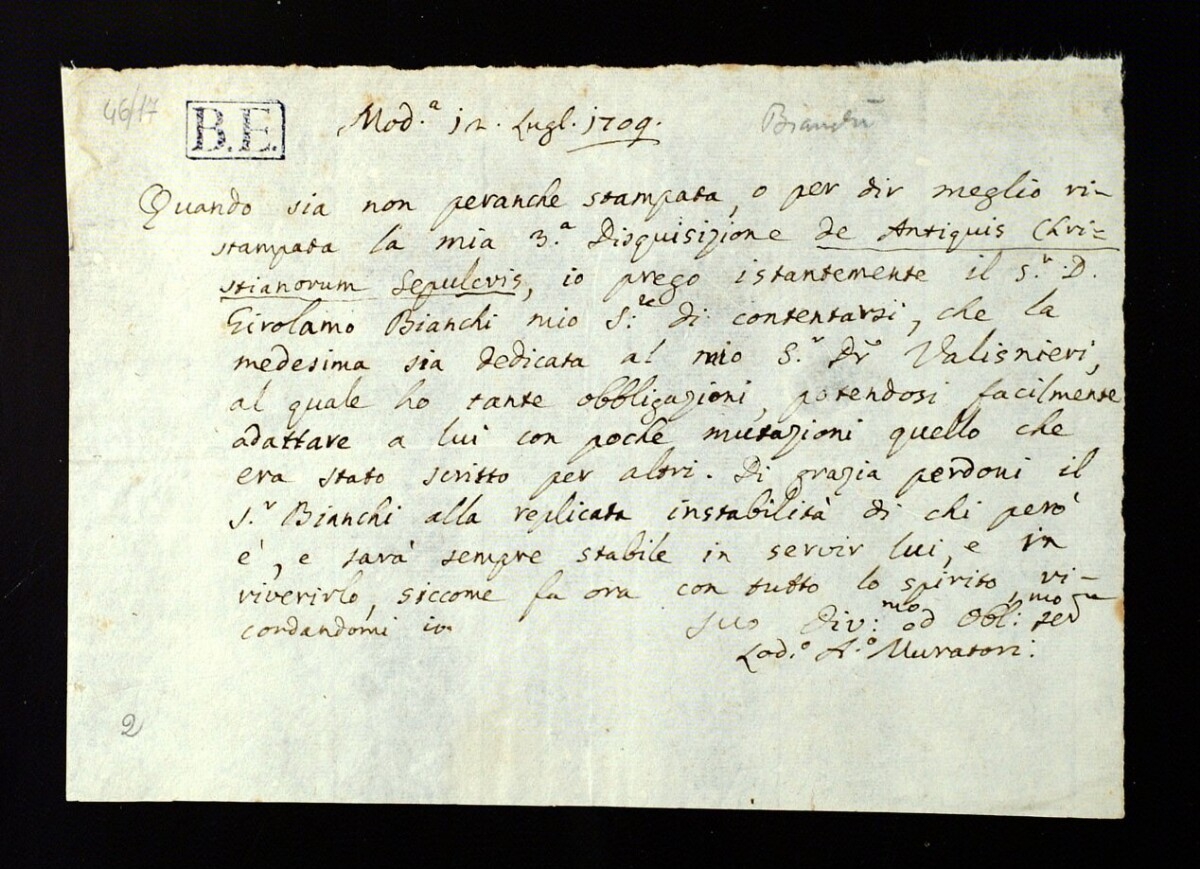 46/17
B.E.
Mod.ª 12. Lugl. 1709.
Quando sia non peranche stampata, o per dir meglio ri-
stampata la mia 3.ª Disquisizione de Antiquis Chri=
stianorum Sepulcris, io prego istantemente il S.r D.
Girolamo Bianchi mio S.re di contentarsi, che la
medesima sia dedicata al mio S.r Dr Valisnieri,
al quale ho tante obbligazioni, potendosi facilmente
adattare a lui con poche mutazioni quello che
era stato scritto per altri. Di grazia perdoni il
S.r Bianchi alla replicata instabilità di chi però
è, e sarà sempre stabile in servir lui, e in
riverirlo, siccome fa ora con tutto lo spirito, ri-
cordandomi io
suo Div:mo ed Obl:mo
Lod.o A.o Muratori.
2